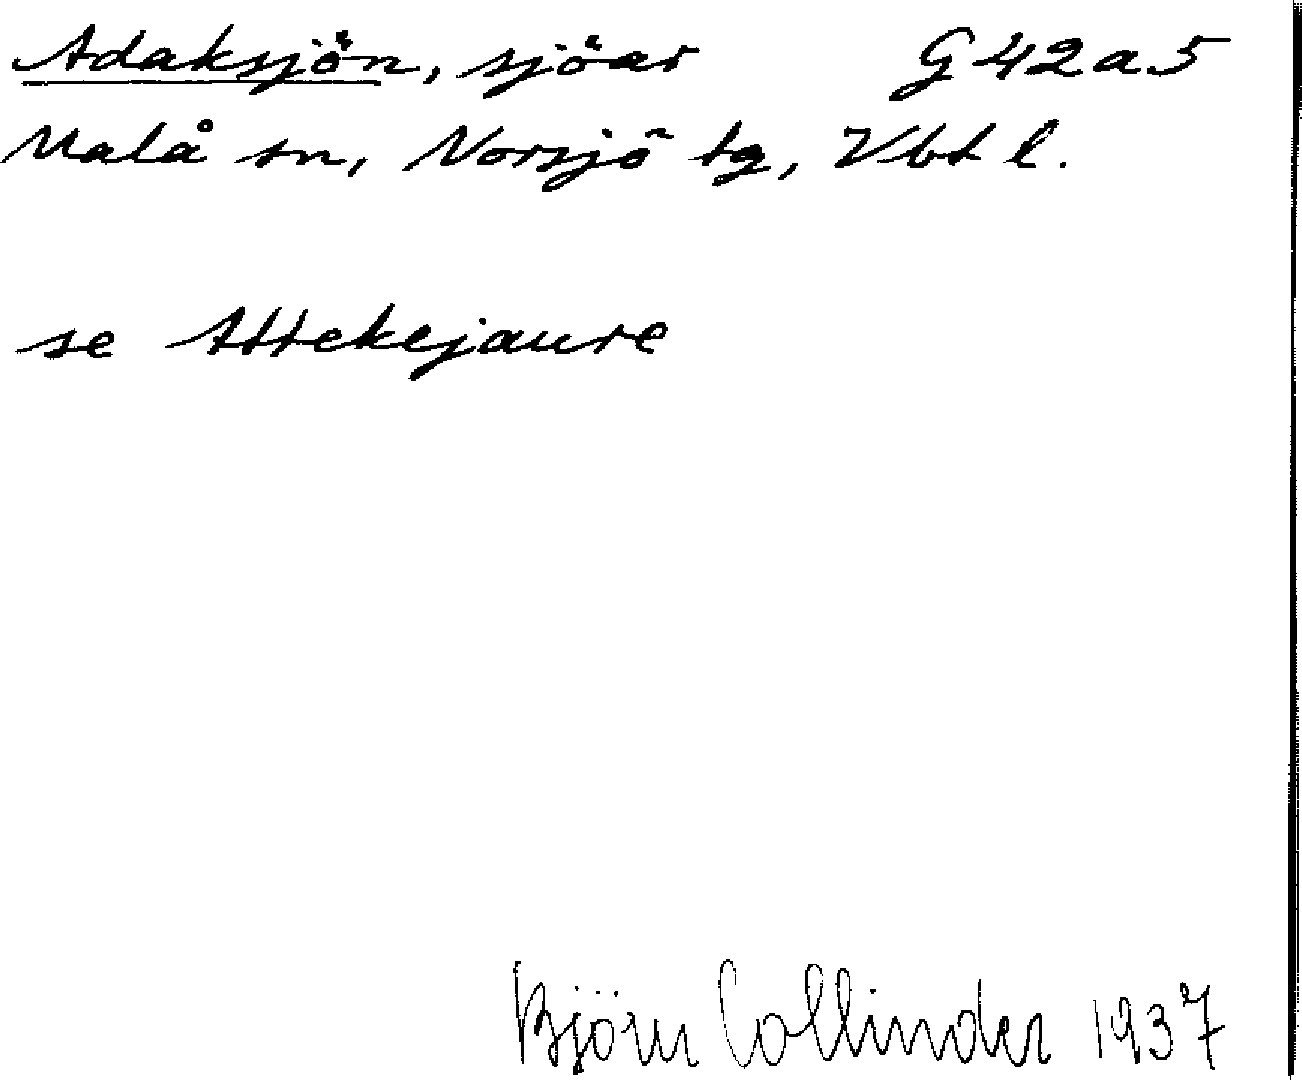 Adaksjön, sjöar G 42 a 5
Malå sn, Norsjö tg, Vbt l.
se Attekejaure
Björn Collinder 1937